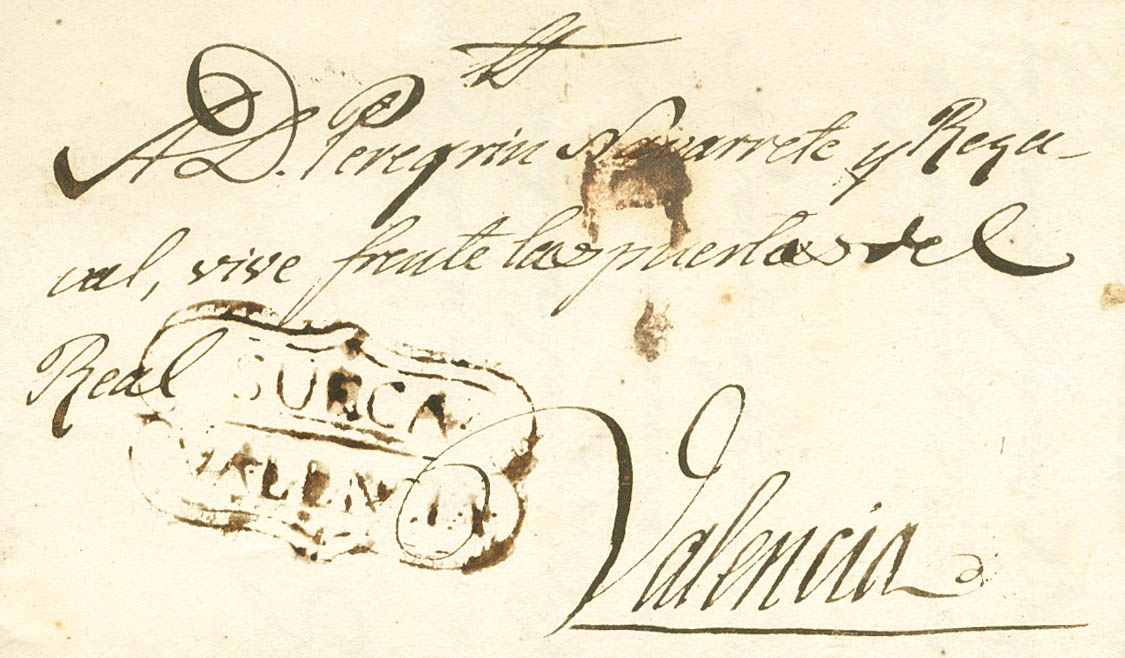 A D. Peregrin Navarrete y Regu-
ral, vive frente las puertas del
Real
SUECA
VALENCIA
Valencia